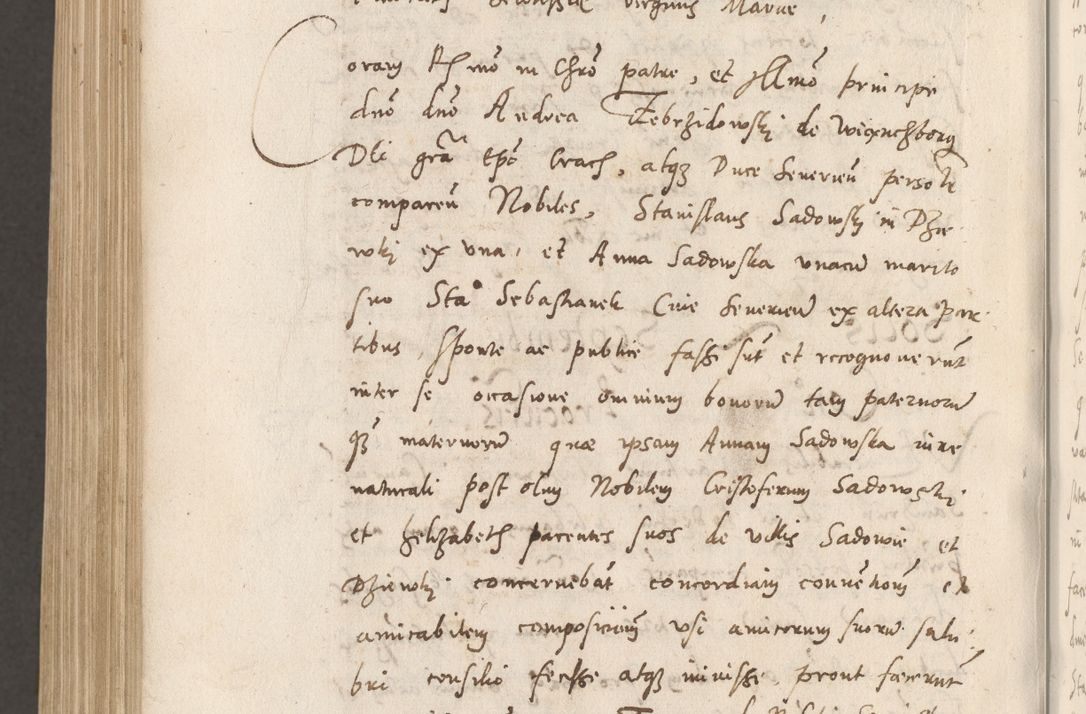 virginis Mariae,
Coram R͠ssimo in Chr͠o patre, et Ill͠mo principe
dn͠o dn͠o Andrea Zebrzidowskj de Wiączborg
Dei gr͠a Ep͠o Crac͠, atqꜣ Duce Severien͠ person͠
comparen͠ Nobiles, Stanislaus Sadowskj in Dzie
wkj ex vna, et Anna Sadowska vnacu͠ marito
suo Sta͠o Sebastianek Ciue Severien͠ ex altera par
tibus, sponte ac publice fassi su͠t et recognoveru͠t
inter se occasione omnium bonoru͠ tam paternoru͠
q͠ȝ maternoru͠ quae ipsam Annam Sadowska iure
naturali post olim Nobilem Cristoferum Sadowskj
et Helizabeth parentes suos de villis Sadowie et
Dziewkj concerneba͠t concordiam conue͠tione͠ et
amicabilem compositione͠ vsi amicorum suoru͠ salu
bri consilio fecisse atqꜣ iniuisse, prout fecerunt